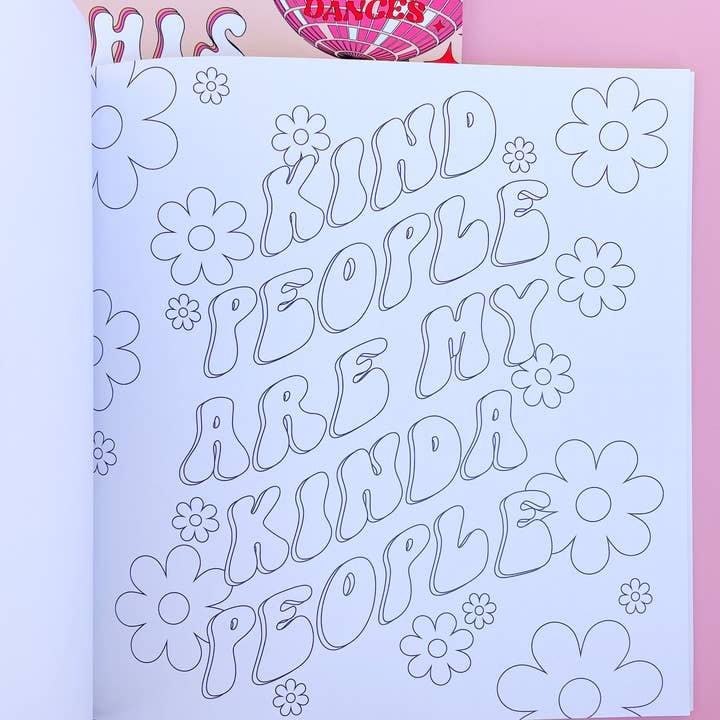 HIS
DANCES
KIND
PEOPLE
ARE MY
KINDA
PEOPLE